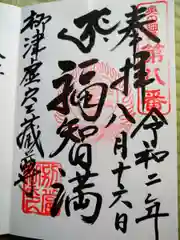 第八番
奉拝
令和二年
八月十六日
福智満
柳津虚空蔵尊